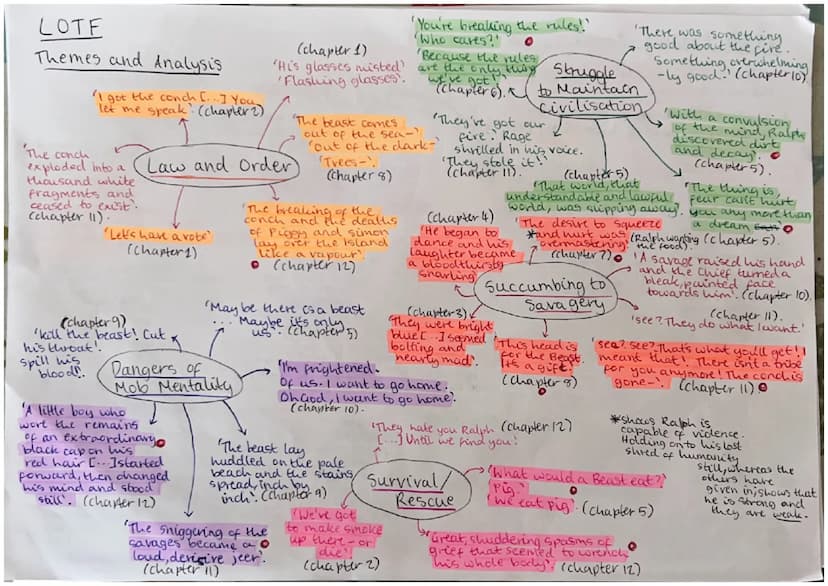 LOTF
Themes and Analysis
(chapter 1)
'His glasses misted'
'Flashing glasses'.
'I got the conch [...] You
let me speak'. (chapter 2)
'The conch
exploded into a
thousand white
fragments and
ceased to exist'.
(chapter 11)
Law and Order
'The beast comes
out of the sea-'
'Out of the dark-'
'Trees-'.
(chapter 8)
'Let's have a vote'
(chapter 1)
'The breaking of the
conch and the deaths
of Piggy and Simon
lay over the island
like a vapour'.
(chapter 12)
'You're breaking the rules!'
'Who cares?'
'Because the rules
are the only thing
we've got'.
(chapter 6)
Struggle
to Maintain
Civilisation
'There was something
good about the fire.
Something overwhelming
-ly good'. (chapter 10)
'They've got our
fire'. Rage
shrilled in his voice.
'They stole it!'
(chapter 11).
(chapter 5)
'That world, that
understandable and lawful
world, was slipping away'.
'With a convulsion
of the mind, Ralph
discovered dirt
and decay'.
(chapter 5)
'The thing is,
fear can't hurt
you any more than
a dream
(chapter 5).
(chapter 4)
'He began to
dance and his
laughter became
a bloodthirsty
snarling'.
The desire to squeeze
*and hurt was
overmastering'. (Ralph wanting
the food).
(chapter 7)
Succumbing to
Savagery
'A savage raised his hand
and the Chief turned a
bleak, painted face
towards him'. (chapter 10).
(chapter 11).
'see? They do what I want.'
(chapter 3)
'They were bright
blue [...] seemed
bolting and
nearly mad'.
'This head is
for the Beast.
Its a gift'.
(chapter 8)
'See? See? That's what you'll get! I
meant that! There isn't a tribe
for you anymore! The conch is
gone-'. (chapter 11)
(chapter 9)
'Kill the beast! Cut
his throat!
spill his
blood!'
'Maybe there is a beast
... Maybe its only
us'. (chapter 5)
Dangers of
Mob Mentality
'I'm frightened.
Of us. I want to go home.
Oh God, I want to go home'.
(chapter 10).
'A little boy who
wore the remains
of an extraordinary
black cap on his
red hair [...] started
forward, then changed
his mind and stood
still'. (chapter 12)
'The beast lay
huddled on the pale
beach and the stains
spread, inch by
inch'. (chapter 9)
'The sniggering of the
savages became a
loud, derisive jeer'.
(chapter 11)
'They hate you Ralph (chapter 12)
[...] Until we find you!'
Survival/
Rescue
'We've got
to make smoke
up there - or
die'.
(chapter 2)
'What would a Beast eat?'
'Pig.'
'We eat pig'.
(chapter 5)
'Great, shuddering spasms of
grief that seemed to wrench
his whole body'. (chapter 12)
*shows Ralph is
capable of violence.
Holding onto his last
shred of humanity
still, whereas the
others have
given in, shows that
he is strong and
they are weak.